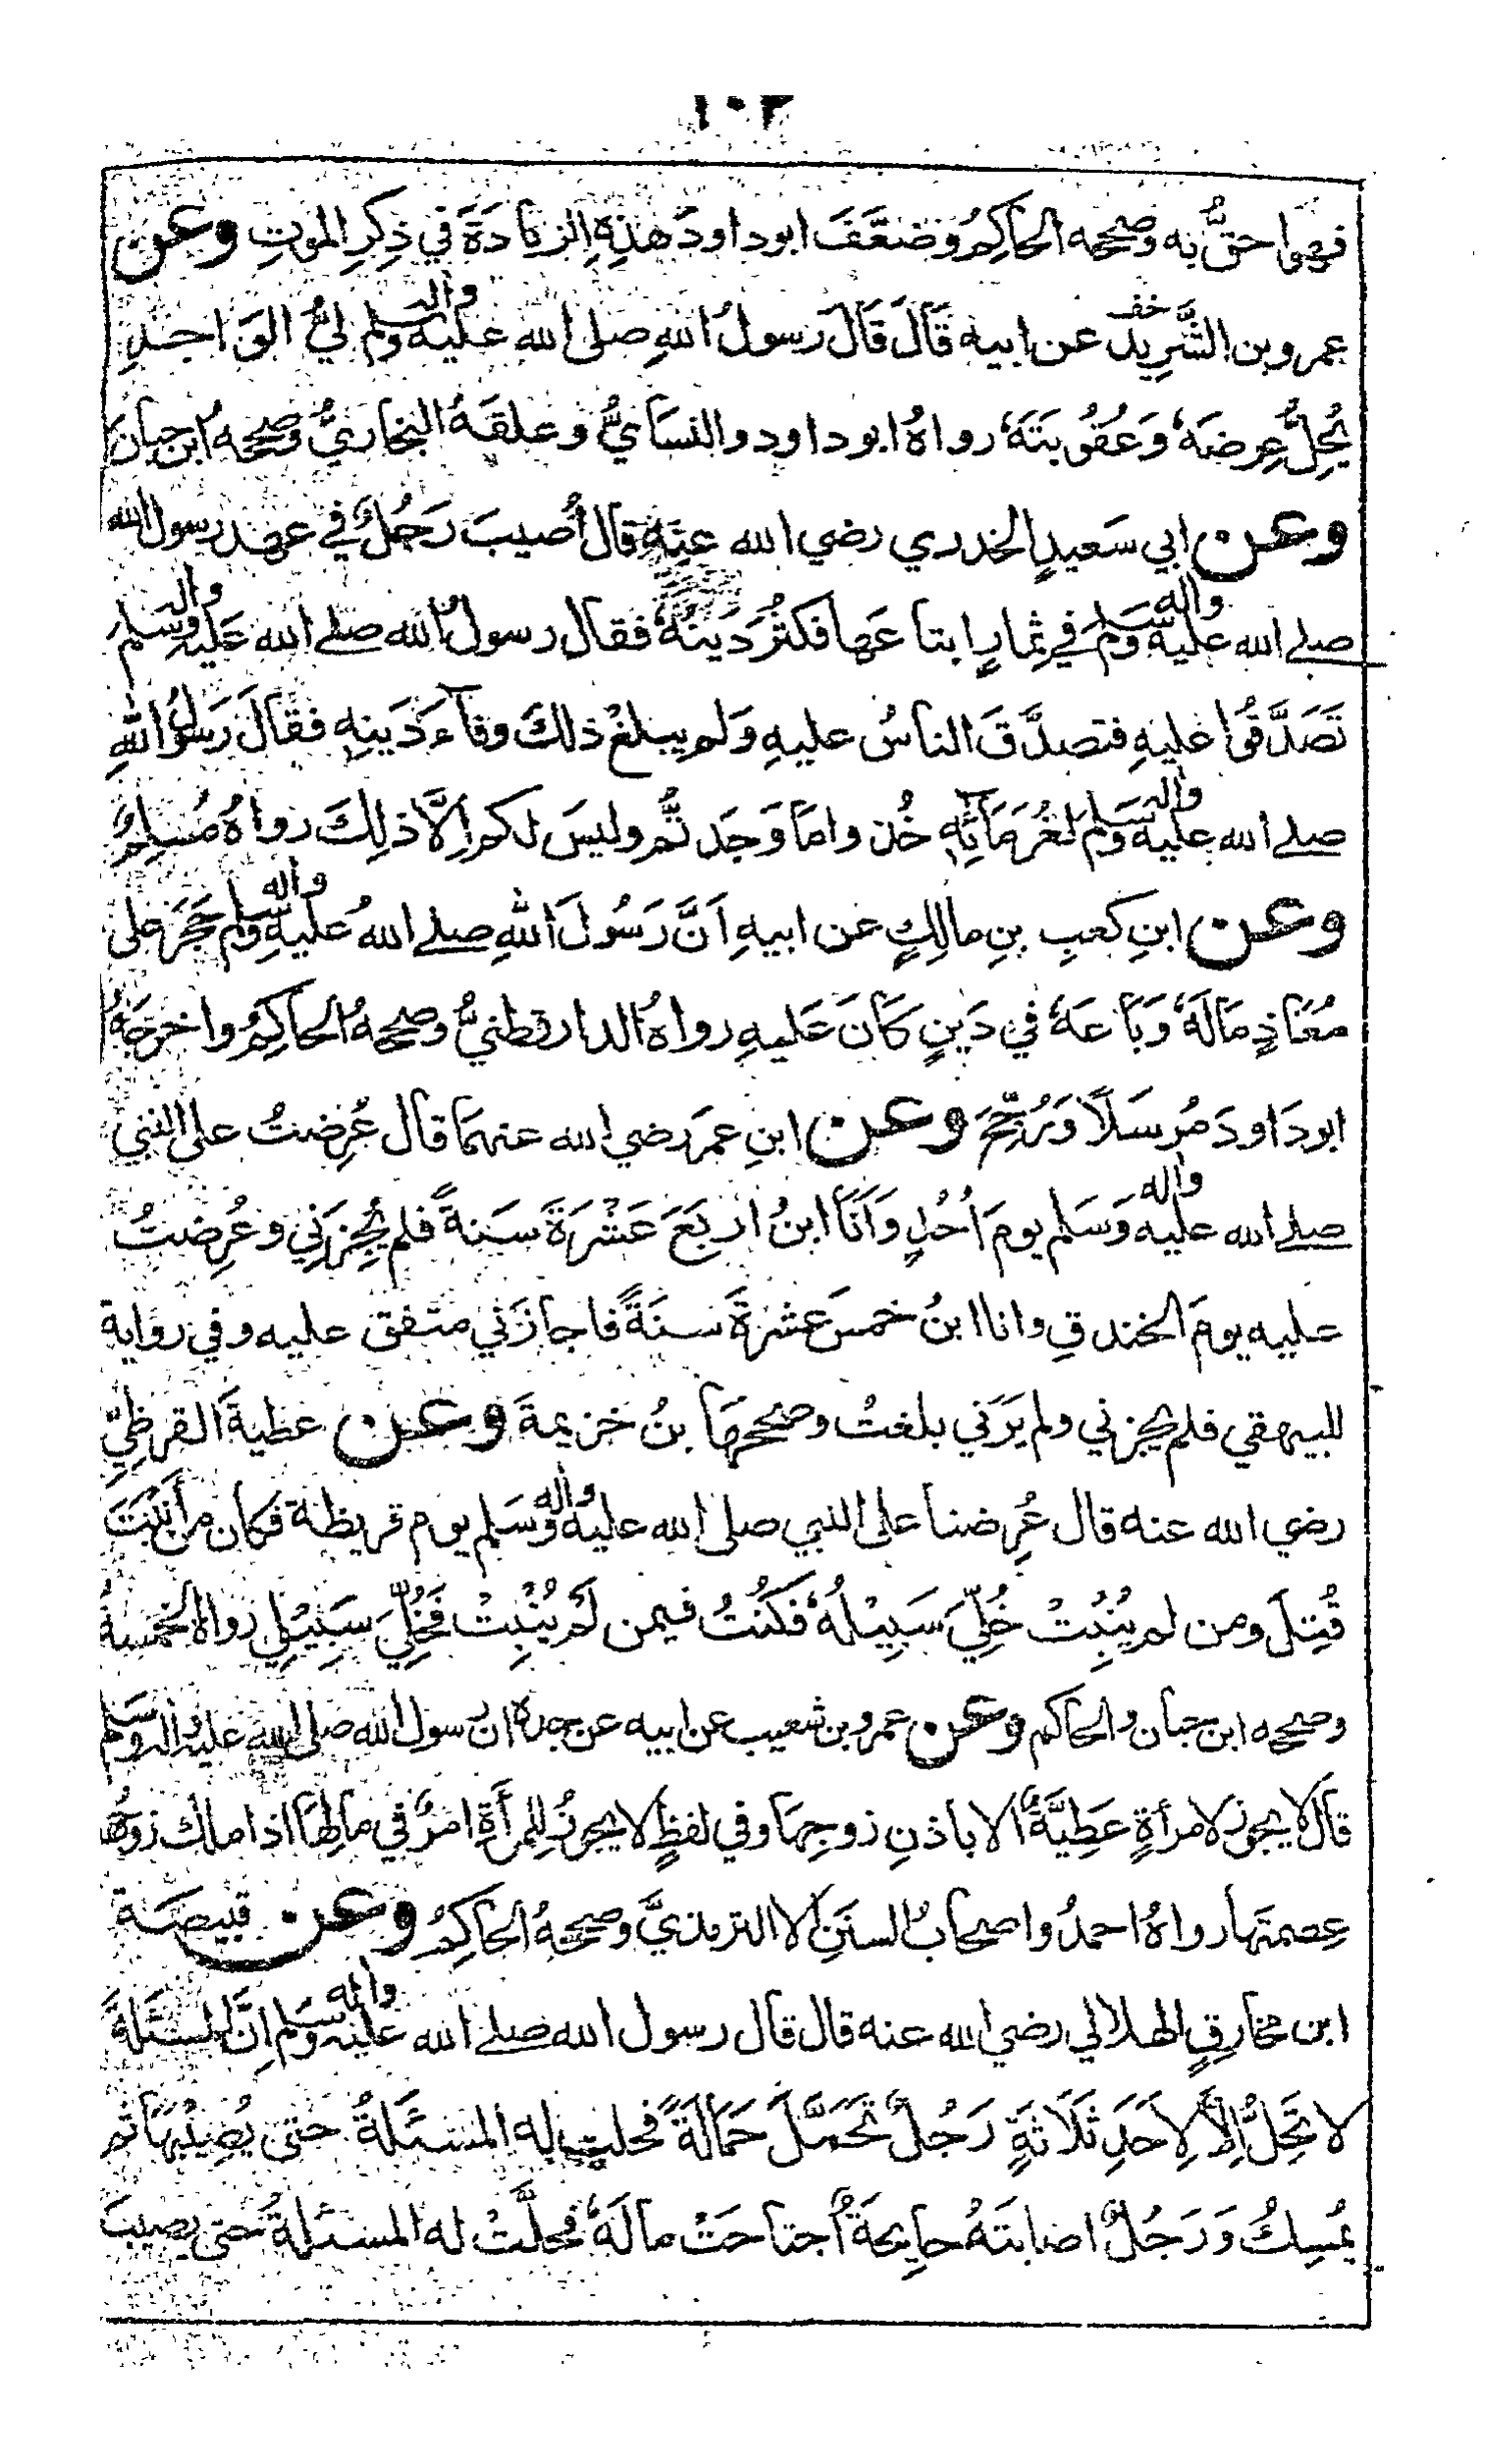 ١٠٢
فهوا حقُّ به وصححه الحاكِمُ وضَعَّفَ ابوداودَ هٰذِهِ الزيادَةَ في ذِكرِ الموتِ وعن
عمر وبن الشَّرِيد عن ابيه قَالَ قَالَ رَسولُ اللهِ صلى الله عليه واله وسلم ليُّ الوَاجدِ
يُحِلُّ عِرضَهٗ وَعُقُوبَتَهٗ رواهُ ابوداود والنسَايُّ وعلقَهُ البخاريُّ وصححهُ ابن حبانَ
وعن ابي سَعيدٍ الخدري رضي الله عنهِ قال أُصيبَ رَجُلٌ في عهد رسول الله
صلے الله عليه واله وسلم في ثمارٍ ابتاعَها فكثُرَ دَينُهٗ فقال رسولُ الله صلے الله عَليهِ واله وسلم
تَصَدَّقُوا عليهِ فتصدَّقَ الناسُ عليهِ وَلم يبلغْ ذلكَ وفآءَ دَينِهِ فقالَ رَسولُ اللهِ
صلے الله عليه واله وسلم لغُرَمَائِهٖ خُذوا مَا وَجَدتُّم وليسَ لكم اِلَّا ذلِكَ رواهُ مُسلِمٌ
وعن ابنِ كعبِ بنِ مالِكٍ عن ابيهِ اَنَّ رَسُولَ اللهِ صلے اللهُ عليهِ واله وسلم حَجَرَ على
مُعَاذٍ مَالَهٗ وَبَاعَهٗ في دَينٍ كَانَ عَليهِ رواهُ الدارقطنيُّ وصححهُ الحاكِمُ واخرجَهُ
ابودَاودَ مُرسَلًا وَرُجِّحَ وعن ابنِ عمرَ رضي الله عنهمَا قال عُرِضتُ على النبي
صلے الله عليه واله وَسَلم يومَ اُحُدٍ وَاَنَا ابنُ اربَعَ عَشْرَةَ سَنةً فلم يُجِزنِي وعُرِضتُ
عليه يومَ الخندقِ وانا ابنُ خمسَ عشرةَ سنَةً فاجازَني متفق عليه وفي رواية
للبيهقي فلم يجزني ولم يَرَني بلغتُ وصححهَا بنُ خزيمةَ وعن عطيةَ القرظِيِّ
رضي الله عنه قال عُرِضنا على النبي صلى الله عليه واله وسَلم يوم قريظة فكان من أنبَتَ
قُتِلَ ومن لم يُنبِتْ خُلِّيَ سَبِيْلُهٗ فكنتُ فيمن لَم يُنْبِتْ فَخُلِّيَ سَبِيْلِي رواهُ الخمسةُ
وصححه ابن حبان والحاكم وعن عمرو بن شعيب عن ابيه عن جده ان رسول الله صلى الله عليه واله وسلم
قال لا يجوز لامرأةٍ عَطِيَّةٌ الا باذنِ زوجِهَا وفي لفظٍ لا يجوزُ لِلمرأَةِ امرٌ في مالِهَا اذا ملك زوجُها
عِصمتَها رواهُ احمدُ واصحابُ السننِ الا الترمذيَّ وصححهُ الحاكِمُ وعن قبيصة
ابن مخارقٍ الهلالي رضي الله عنه قال قال رسول الله صلے الله عليه واله وسلم اِنَّ المسئلةَ
لا تَحِلُّ اِلَّا لِاَحَدِ ثَلَاثَةٍ رَجُلٌ تَحَمَّلَ حَمَالَةً فحلت له المسئَلةُ حتى يُصِيْبَهَا ثم
يُمسِكُ وَرَجُلٌ اصابتهُ جايِحَةٌ اُجتاحَتْ مالَهٗ فحلَّتْ له المسئلةُ حتى يصيبَ